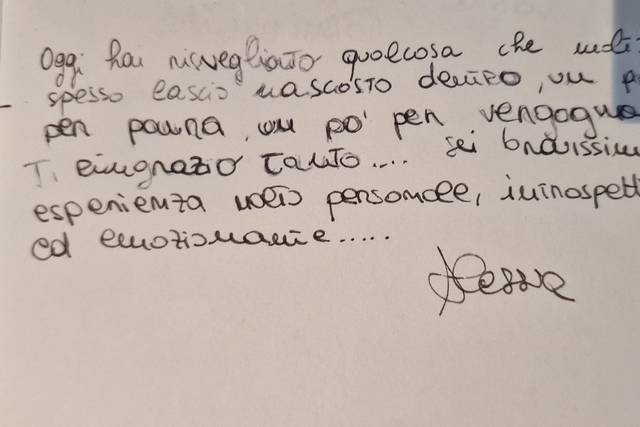 Oggi hai risvegliato qualcosa che molti
spesso lascio nascosto dentro, un p
per paura, un po' per vengogna
Ti ringrazio tanto.... sei bravissim
esperienza molto personale, introspetti
ed emozionante.....